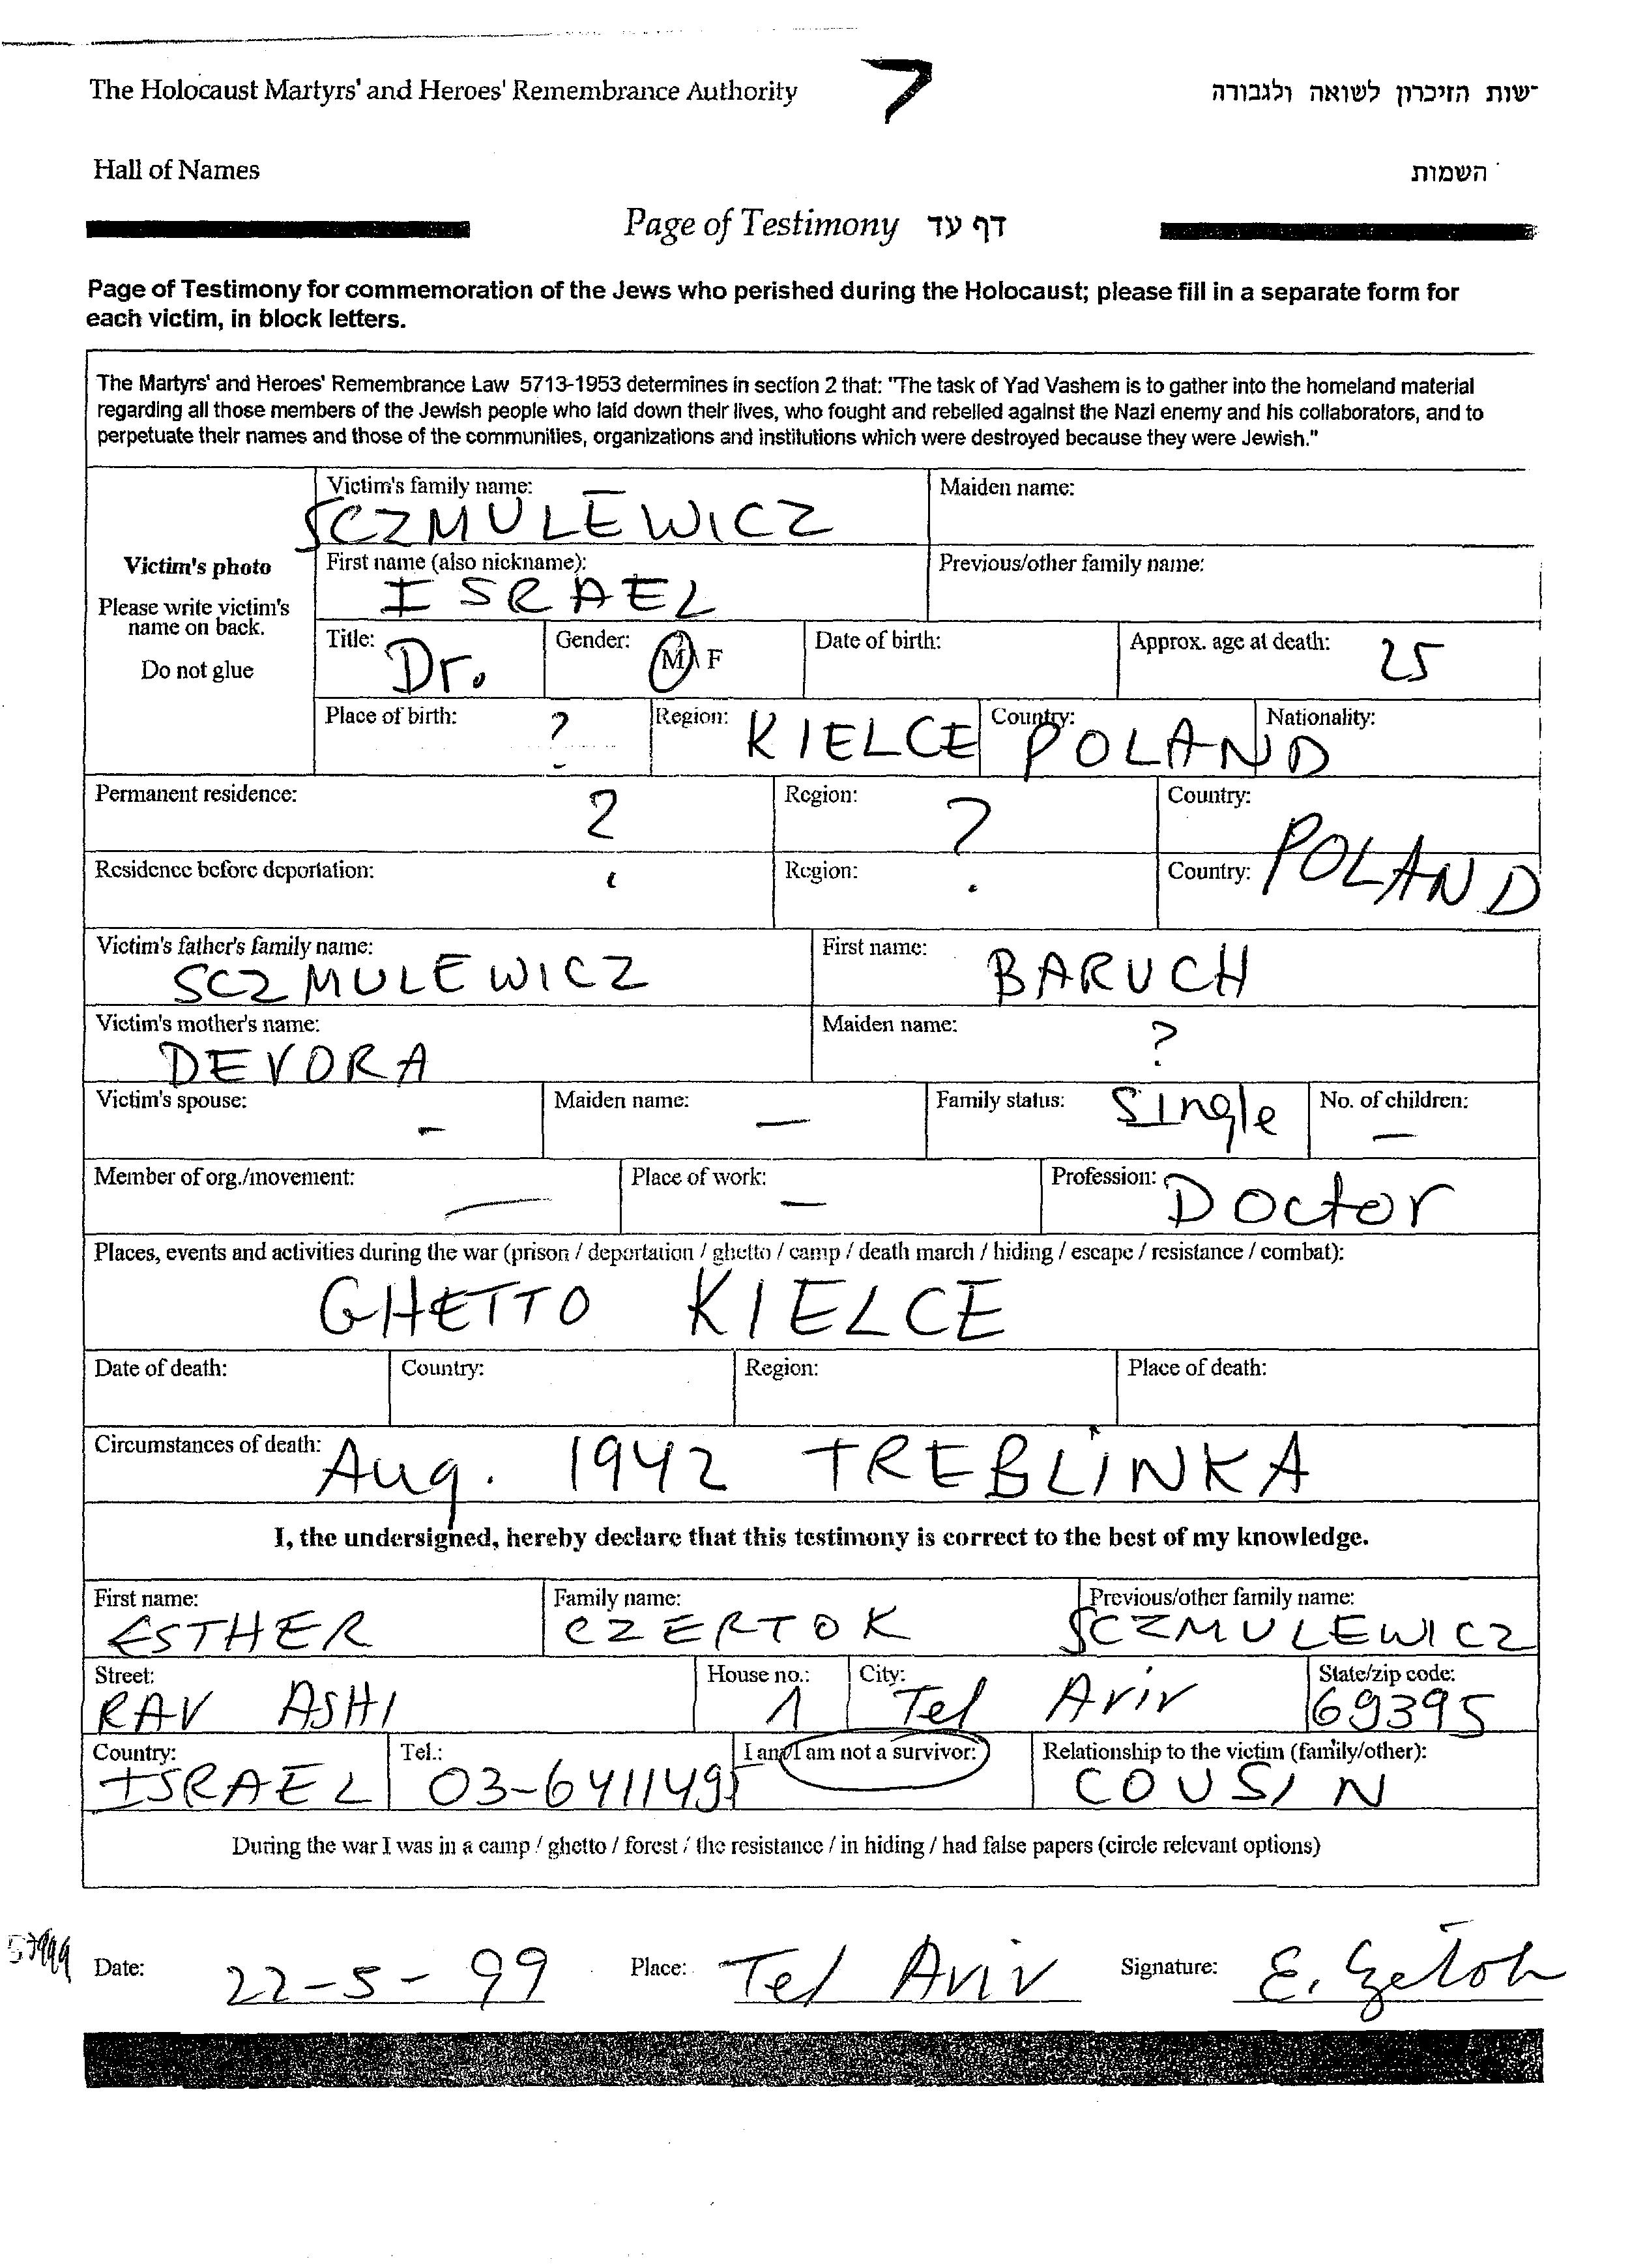 The Holocaust Martyrs' and Heroes' Remembrance Authority 7 ־שות הזיכרון לשואה ולגבורה
Hall of Names השמות
Page of Testimony דף עד
Page of Testimony for commemoration of the Jews who perished during the Holocaust; please fill in a separate form for
each victim, in block letters.
The Martyrs' and Heroes' Remembrance Law 5713-1953 determines in section 2 that: "The task of Yad Vashem is to gather into the homeland material
regarding all those members of the Jewish people who laid down their lives, who fought and rebelled against the Nazi enemy and his collaborators, and to
perpetuate their names and those of the communities, organizations and institutions which were destroyed because they were Jewish."
Victim's photo
Please write victim's
name on back.
Do not glue
Victim's family name: SCZMULEWICZ Maiden name:
First name (also nickname): ISRAEL Previous/other family name:
Title: Dr. Gender: M F Date of birth: Approx. age at death: 25
Place of birth: ? Region: KIELCE Country: POLAND Nationality:
Permanent residence: ? Region: ? Country:
Residence before deportation: Region: Country: POLAND
Victim's father's family name: SCZMULEWICZ First name: BARUCH
Victim's mother's name: DEVORA Maiden name: ?
Victim's spouse: - Maiden name: - Family status: Single No. of children: -
Member of org./movement: - Place of work: - Profession: Doctor
Places, events and activities during the war (prison / deportation / ghetto / camp / death march / hiding / escape / resistance / combat):
GHETTO KIELCE
Date of death: Country: Region: Place of death:
Circumstances of death: Aug. 1942 TREBLINKA
I, the undersigned, hereby declare that this testimony is correct to the best of my knowledge.
First name: ESTHER Family name: CZERTOK Previous/other family name: SCZMULEWICZ
Street: RAV ASHI House no.: 1 City: Tel Aviv State/zip code: 69395
Country: ISRAEL Tel.: 03-6411495 I am/I am not a survivor: Relationship to the victim (family/other): COUSIN
During the war I was in a camp / ghetto / forest / the resistance / in hiding / had false papers (circle relevant options)
Date: 22-5-99 Place: Tel Aviv Signature: E.